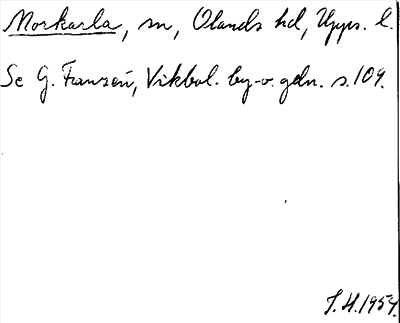 Morkarla, sn, Olands hd, Upps. l.
Se G. Franzén, Vikbol. by-o. gdn. s. 109.
S.H. 1954.